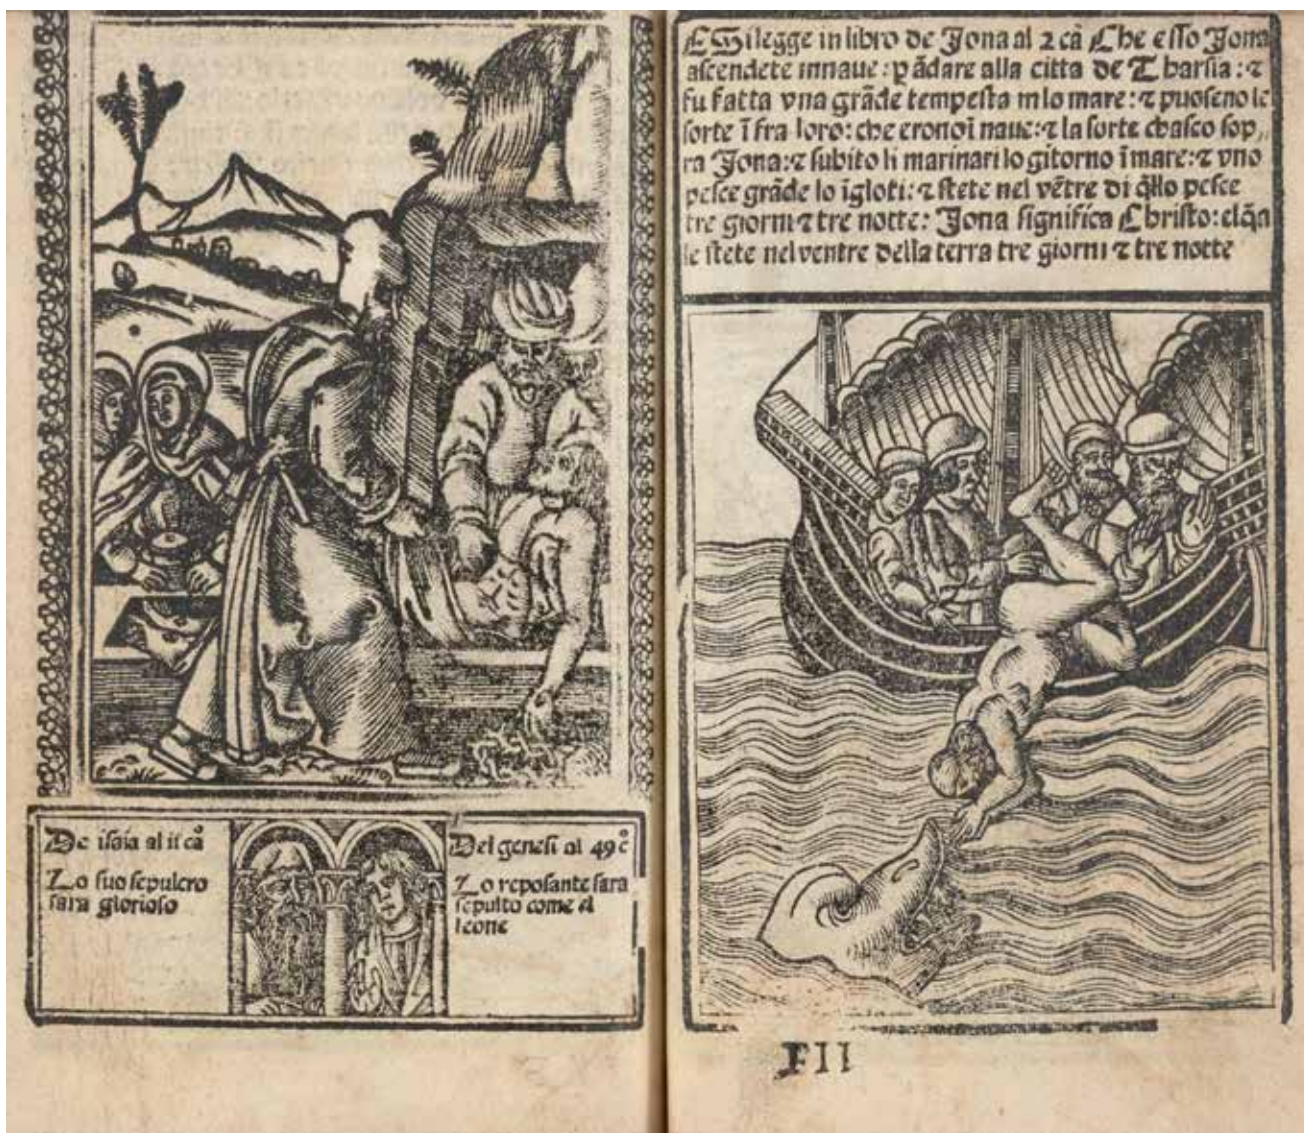 De isaia al ii cȧ
Lo suo sepulcro
sara glorioso
Del genesi al 49 c̊
Lo reposante sara
sepulto come el
leone
E Si legge in libro de Jona al 2 cā Che esso Jona
ascendete innaue: p ādare alla citta de Tharsia: ⁊
fu fatta vna grāde tempesta in lo mare: ⁊ puoseno le
sorte ī fra loro: che erono ī naue: ⁊ la sorte chasco sop,,
ra Jona: ⁊ subito li marinari lo gitorno ī mare: ⁊ vno
pesce grāde lo īgloti: ⁊ stete nel vētre di q̄llo pesce
tre giorni ⁊ tre notte: Jona significa Christo: el q̄a
le stete nel ventre della terra tre giorni ⁊ tre notte
FII